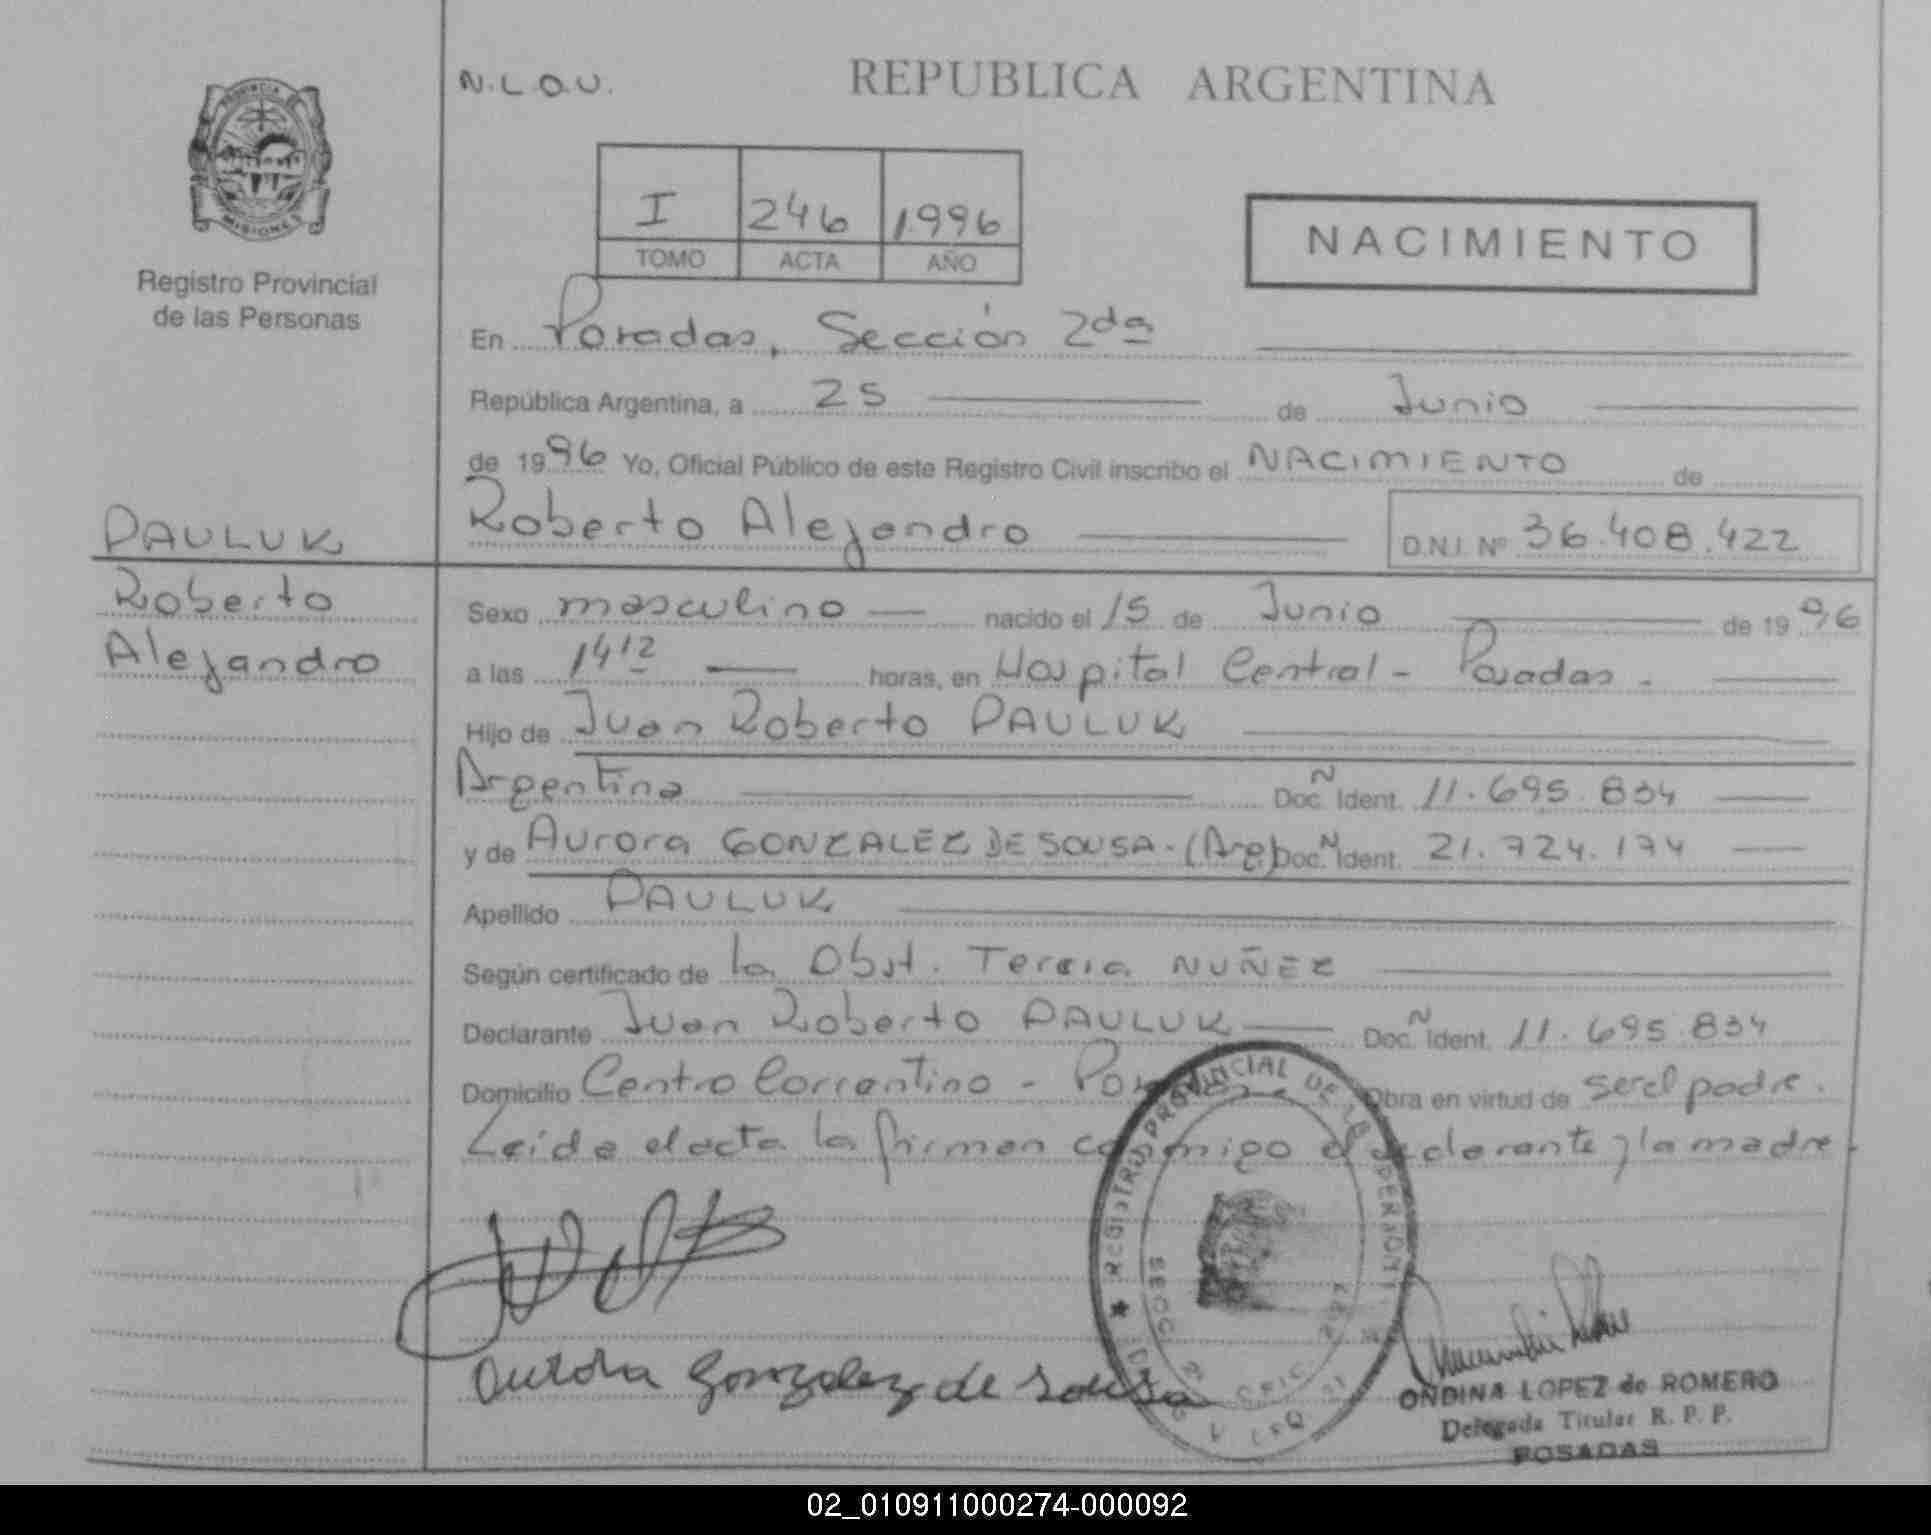 PROVINCIA DE
MISIONES
Registro Provincial
de las Personas
PAULUK
Roberto
Alejandro
N.L.O.U.
REPUBLICA ARGENTINA
I 246 1996
TOMO ACTA AÑO
NACIMIENTO
En Posadas, Sección 2da
República Argentina, a 25 de Junio
de 1996 Yo, Oficial Público de este Registro Civil inscribo el NACIMIENTO de
Roberto Alejandro D.N.I. Nº 36.408.422
Sexo masculino nacido el 15 de Junio de 1996
a las 14 12 horas, en Hospital Central - Posadas.
Hijo de Juan Roberto PAULUK
Argentina Doc. N Ident. 11.695.834
y de Aurora GONZALEZ DE SOUSA. (Arg) Doc. N Ident. 21.724.174
Apellido PAULUK
Según certificado de la Obst. Teresa NUÑEZ
Declarante Juan Roberto PAULUK Doc. N Ident. 11.695.834
Domicilio Centro Correntino - Posadas Obra en virtud de ser el padre.
Leida el acta la firman conmigo el declarante y la madre.
REGISTRO PROVINCIAL DE LAS PERSONAS
SECC. 2ª
Aurora Gonzalez de Sousa
ONDINA LOPEZ de ROMERO
Delegada Titular R. P. P.
POSADAS
02_010911000274-000092